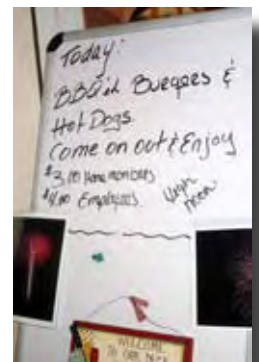 Today:
BBQ'd Burgers &
Hot Dogs.
Come on out & Enjoy
$3.00 Home monitors
$4.00 Employees
High Noon
WELCOME
TO OUR DECK